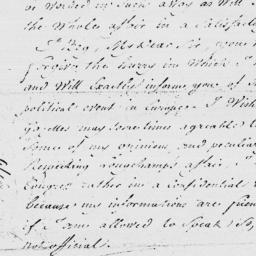 or worded in such a way as will
the whole affair in a satisfact
I Beg, My Dear Sir, your
forgive the hurry in which I
and Will Exactly inform you of
political event in Europe. I Wish
may some times agreable to
some of my opinion, and peculiar
Respecting Longchamps affair. I
Congress rather in a Confidential
because my informations are
if I am allowed to Speak So,
not official.